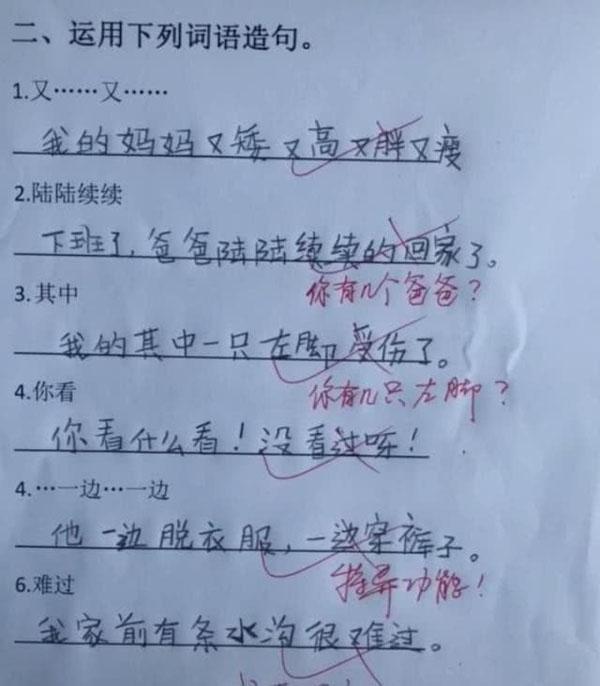 二、运用下列词语造句。
1.又……又……
我的妈妈又矮又高又胖又瘦
2.陆陆续续
下班了,爸爸陆陆续续的回家了。
你有几个爸爸?
3.其中
我的其中一只左脚受伤了。
你有几只左脚?
4.你看
你看什么看!没看过呀!
4.…一边…一边
他一边脱衣服,一边穿裤子。
特异功能!
6.难过
我家前有条水沟很难过。